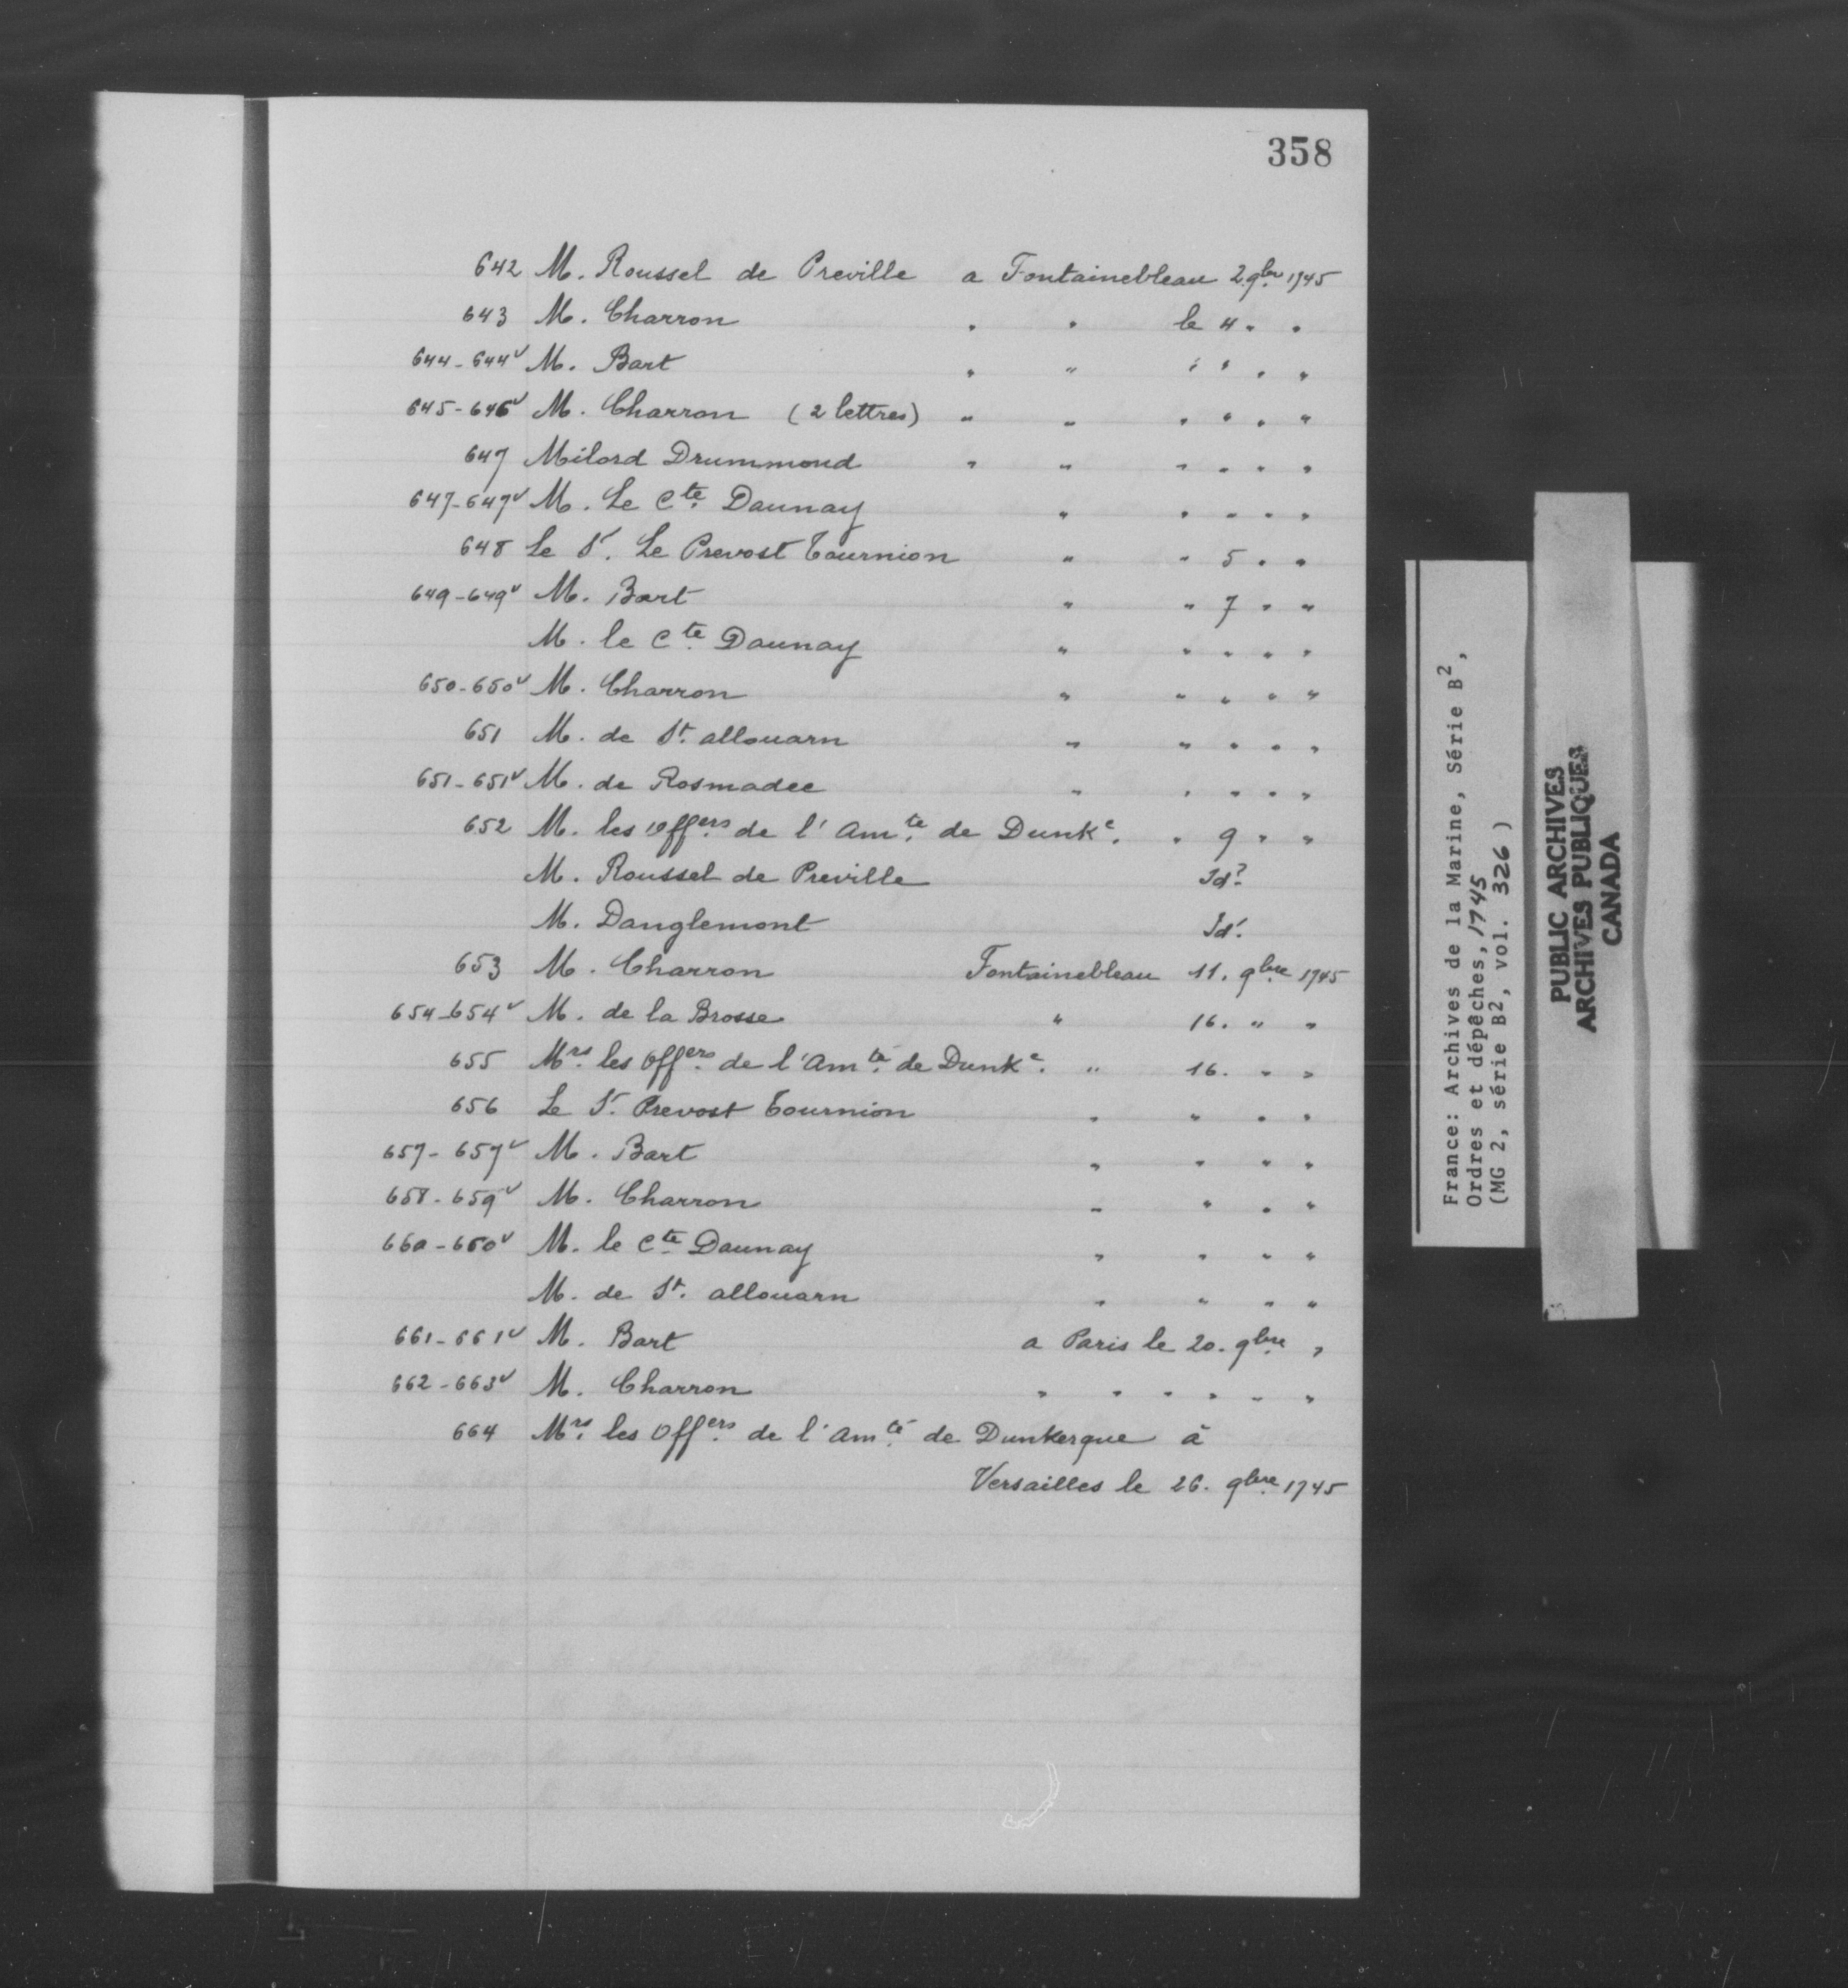 358
642 M. Roussel de Preville a Fontainebleau 2. 9bre 1745
643 M. Charron " " le 4 " "
644-644v M. Bart " " " " " "
645-646v M. Charron (2 lettres) " " " " " "
647 Milord Drummond " " " " " "
647-647v M. Le Cte Daunay " " " " "
648 Le Sr. Le Prevost Tournion " " 5 " "
649-649v M. Bart " " 7 " "
M. le Cte Daunay " " " " "
650-650v M. Charron " " " " "
651 M. de St. allouarn " " " " "
651-651v M. de Rosmadec " " " " "
652 M. les Offers de l'amte de Dunke. " 9 " "
M. Roussel de Preville Id?
M. Danglemont Id.
653 M. Charron Fontainebleau 11. 9bre 1745
654-654v M. de la Brosse " 16. " "
655 Mrs les Offers de l'amté de Dunke. " 16. " "
656 Le Sr. Prevost Tournion " " " "
657-657v M. Bart " " " "
658-659v M. Charron " " " "
660-660v M. le Cte Daunay " " " "
M. de St. allouarn " " " "
661-661v M. Bart a Paris le 20. 9bre "
662-663v M. Charron " " " " " "
664 Mrs les Offers de l'amté de Dunkerque à
Versailles le 26. 9bre 1745
France: Archives de la Marine, Série B2,
Ordres et dépêches, 1745
(MG 2, série B2, vol. 326)
PUBLIC ARCHIVES
ARCHIVES PUBLIQUES
CANADA